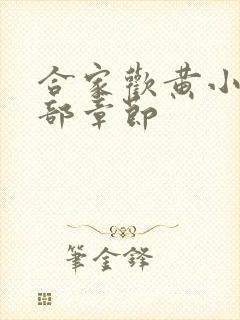 合家歡黄小
部章節
筆金鋒